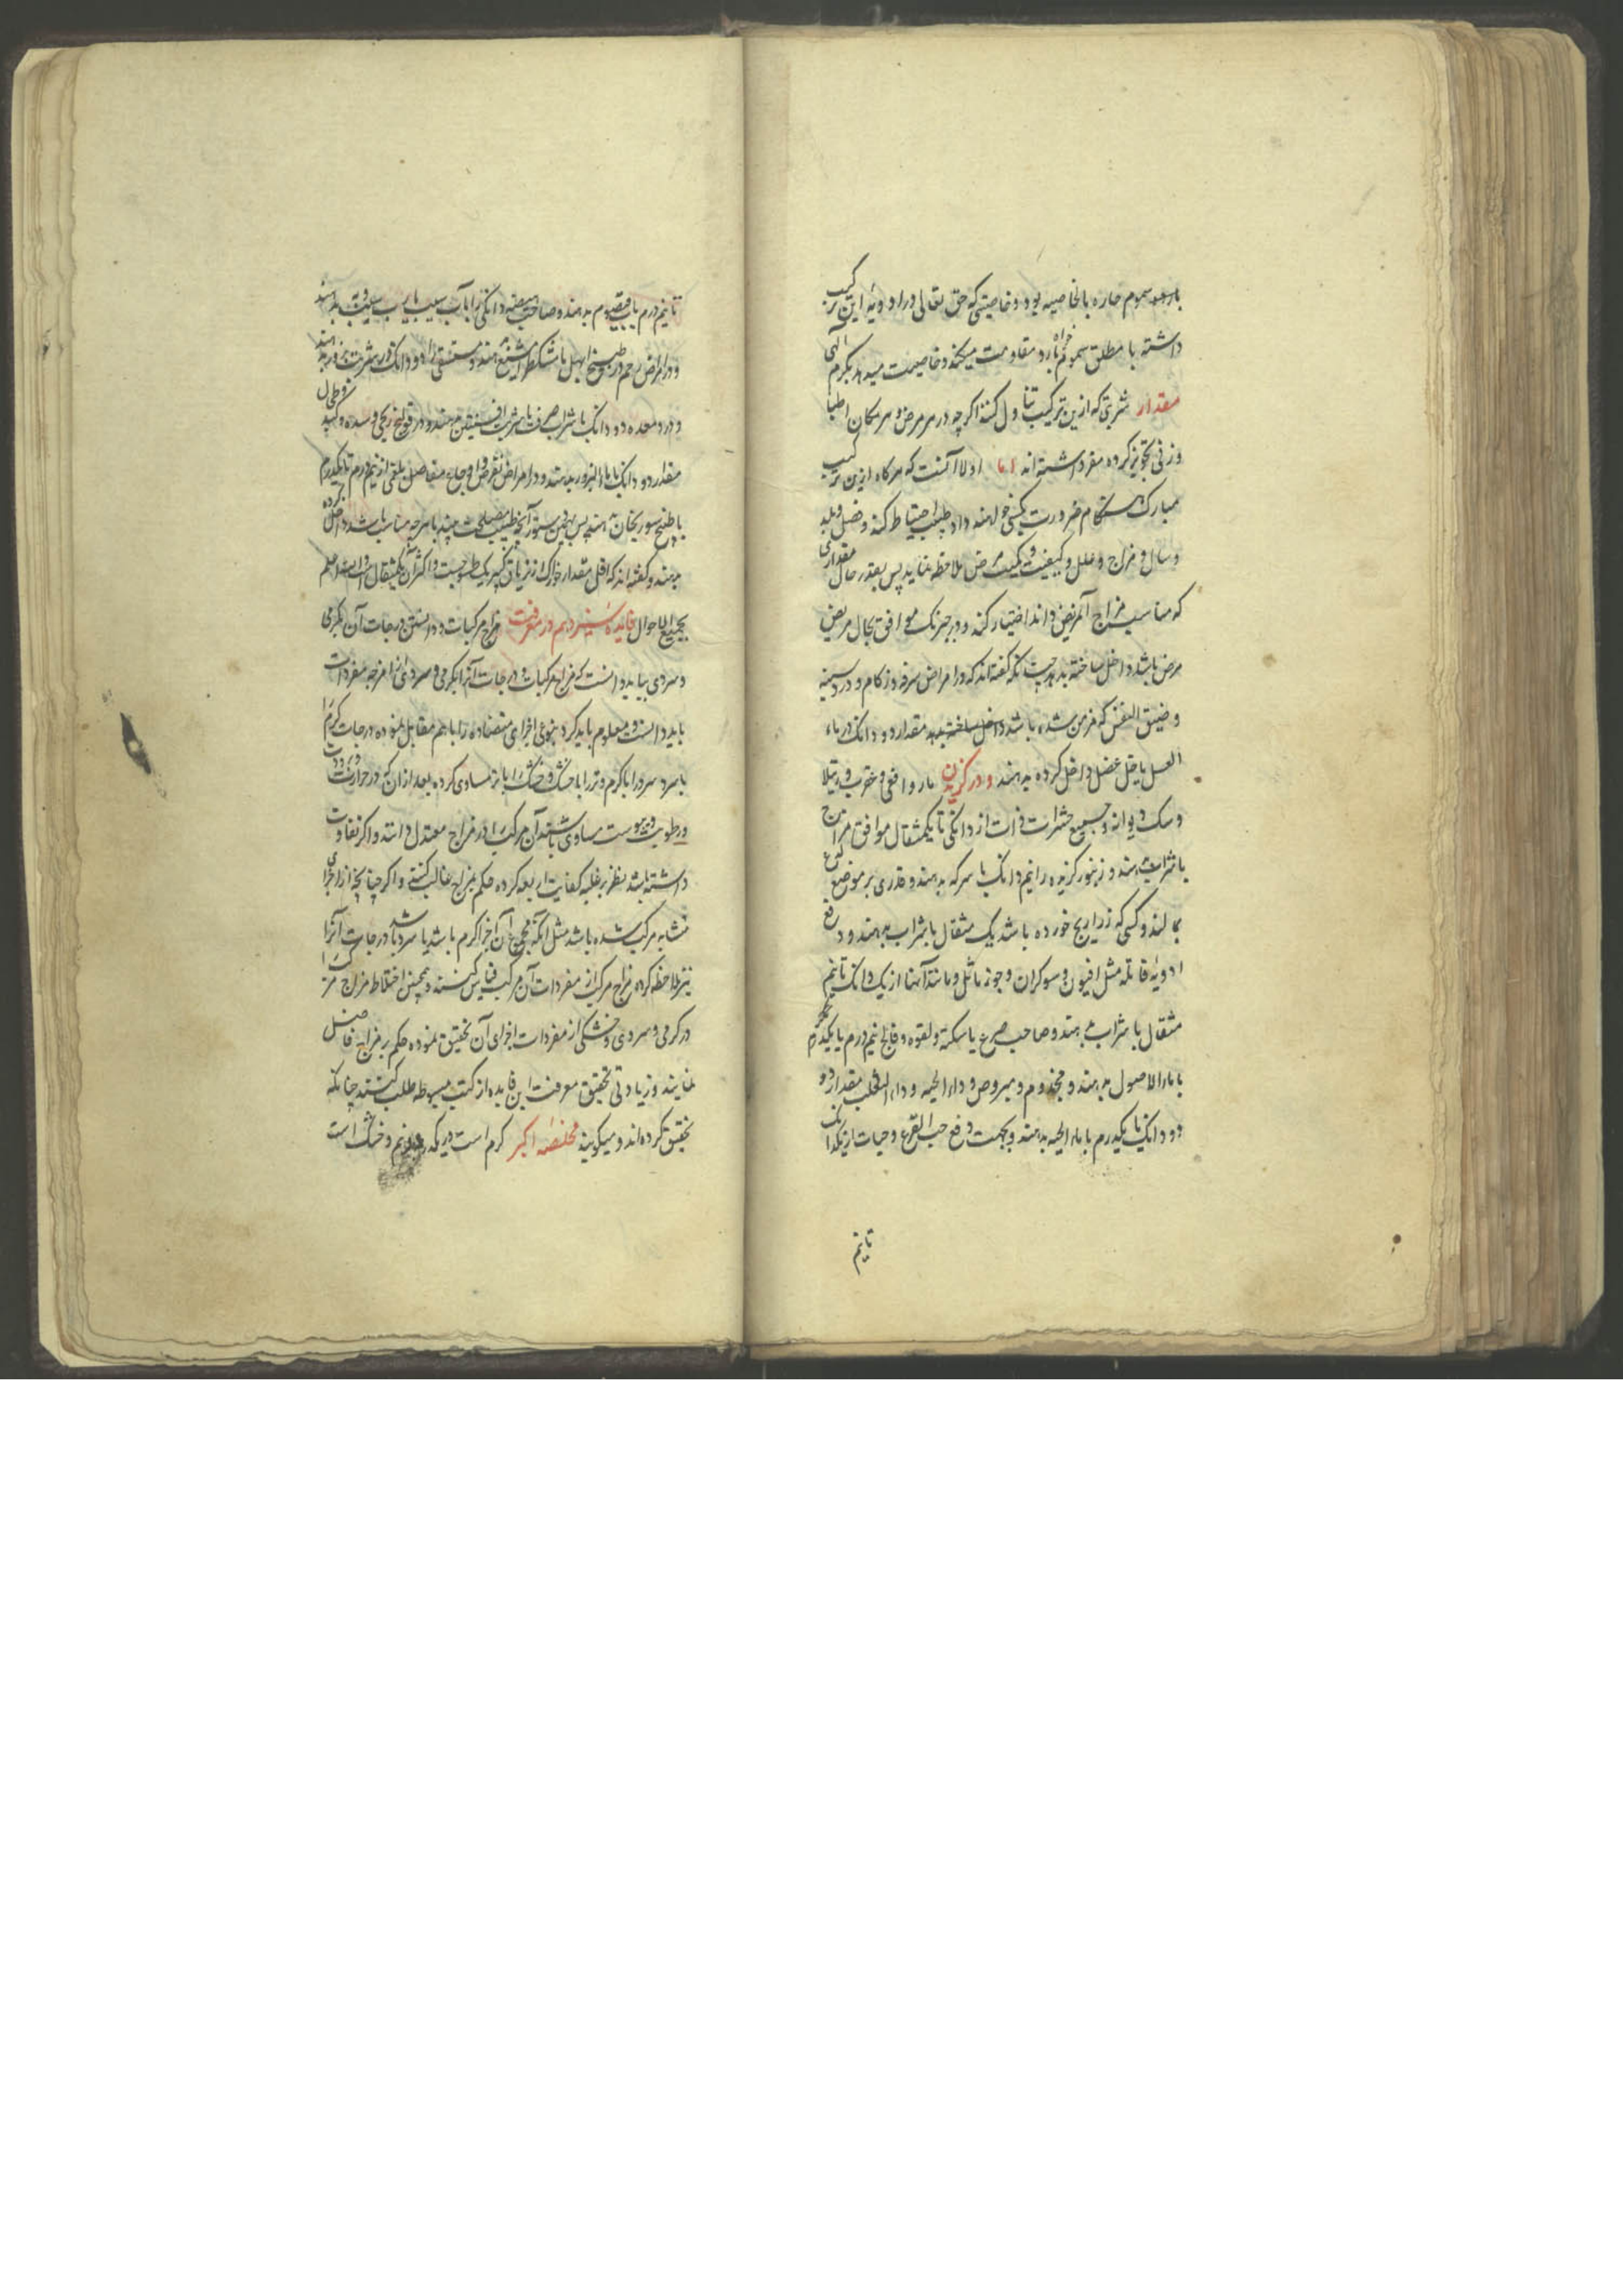 سموم حاره بالخاصیه بود و خاصیتی که حق تعالی در ادویه این ترکیب
داشته با مطلق سموم خواه بارد مقاومت میکند و خاصیت میدهد بکرم الهی
مقدار شربتی که ازین ترکیب تناول کنند اکرچه در هر مرض و هر مکان اطبا
وزنی تجویز کرده مقرر داشته اند اما اولا آنست که هرکاه ازین ترکیب
مبارک هنکام ضرورت بکسی خواهند داد طبیب احتیاط کند و فصل و بلد
و سال و مزاج و علل و کیفیت و کمیت مرض ملاحظه نماید پس بقدر حال مقداری
که مناسب مزاج آنمریض داند اختیار کند و در چیزی که موافق بحال مریض
مرض باشد داخل ساخته بدهد چنانکه کفته اند که در امراض سرفه و زکام و درد سینه
و ضیق النفس که مزمن شده باشد داخل ساخته بدهد مقدار دو دانک در ماء
العسل یا خل عنصل داخل کرده بدهند و در کزیدن مار و افعی و عقرب و رتیلا
و سک دیوانه و جمیع حشرات ذرات از دانکی تا یکمثقال موافق مزاج
با شراب دهند و زنبور کزیده را نیم دانک با سرکه بدهند و قدری بر موضع لدغ
بمالند و کسی که زراریح خورده باشد یک مثقال با شراب بدهند و در دفع
ادویه قاتله مثل افیون و شوکران و جوز ماثل و مانند آنها از یک دانک تا نیم
مثقال با شراب بدهند و صاحب صرع یا سکته و لقوه و فالج نیم درم یا یکدرم
با ماء الاصول بدهند و مجذوم و مبروص و داء الحیه و داء الثعلب مقدار دو
دو دانک تا یکدرم با ماء الحیه بدهند و بجهت دفع حب القرع و حیات از یکدانک
تا نیم
تا نیم درم با قیصوم بدهند و صاحب هیضه دانکی را بآب سیب یا برب سیب و به بدهند
و در امراض رحم در طبیخ ابهل با مشکطرامشیع دهند و مستسقی را دو دانک در شربت بزور بدهند
و درد معده دو دانک با شراب صرف یا شربت افسنتین دهند و در قولنج ریحی و سده و کبد و طحال
مقدار دو دانک با ماء البزور بدهند و در امراض نقرس و اوجاع مفاصل بلغمی از نیم درم تا یکدرم
با طبیخ سورنجان دهند پس بهمین دستور آنچه طبیب مصلحت بیند با هرچه مناسب باشد داخل کرده
بدهند و کفته اند که اقل مقدار خوراک از تریاق کبیر یک طسوجست و اکثر آن یکمثقال است و الله اعلم
بجمیع الاحوال فایده سیزدهم در معرفت مزاج مرکبات و دانستن درجات آن بکرمی
و سردی بباید دانست که مزاج مرکبات و درجات آنرا بکرمی و سردی از امزجه مفردات
باید دانست و معلوم باید کرد بنوعی اجزای متضاده را با هم مقابل نموده درجات کرم را
با سرد سرد را با کرم و تر را با خشک و خشک را با تر مساوی کرده بعد از آن که در حرارت و برودت
و رطوبت و یبوست مساوی باشند آن مرکب را در مزاج معتدل دانند و اکر تفاوت
داشته باشد نظر بر غلبه کیفیات اربعه کرده حکم بمزاج غالب کنند و اکر چنانچه از اجزای
متشابه مرکب شده باشد مثل آنکه مجموع آن اجزا کرم باشد یا سرد باشد درجات آنرا
نیز ملاحظه کرده مزاج مرکب از مفردات آن مرکب قیاس کنند و همچنین اختلاط مزاج مرکب را
در کرمی و سردی و خشکی از مفردات اجزای آن تحقیق نموده حکم بر مزاج فاضل
نمایند و زیادتی تحقیق معرفت این فایده از کتب مبسوطه طلب کنند چنانکه
تحقیق کرده اند و میکویند مخلصه اکبر کرم است در یکدرجه و نیم و خشک است